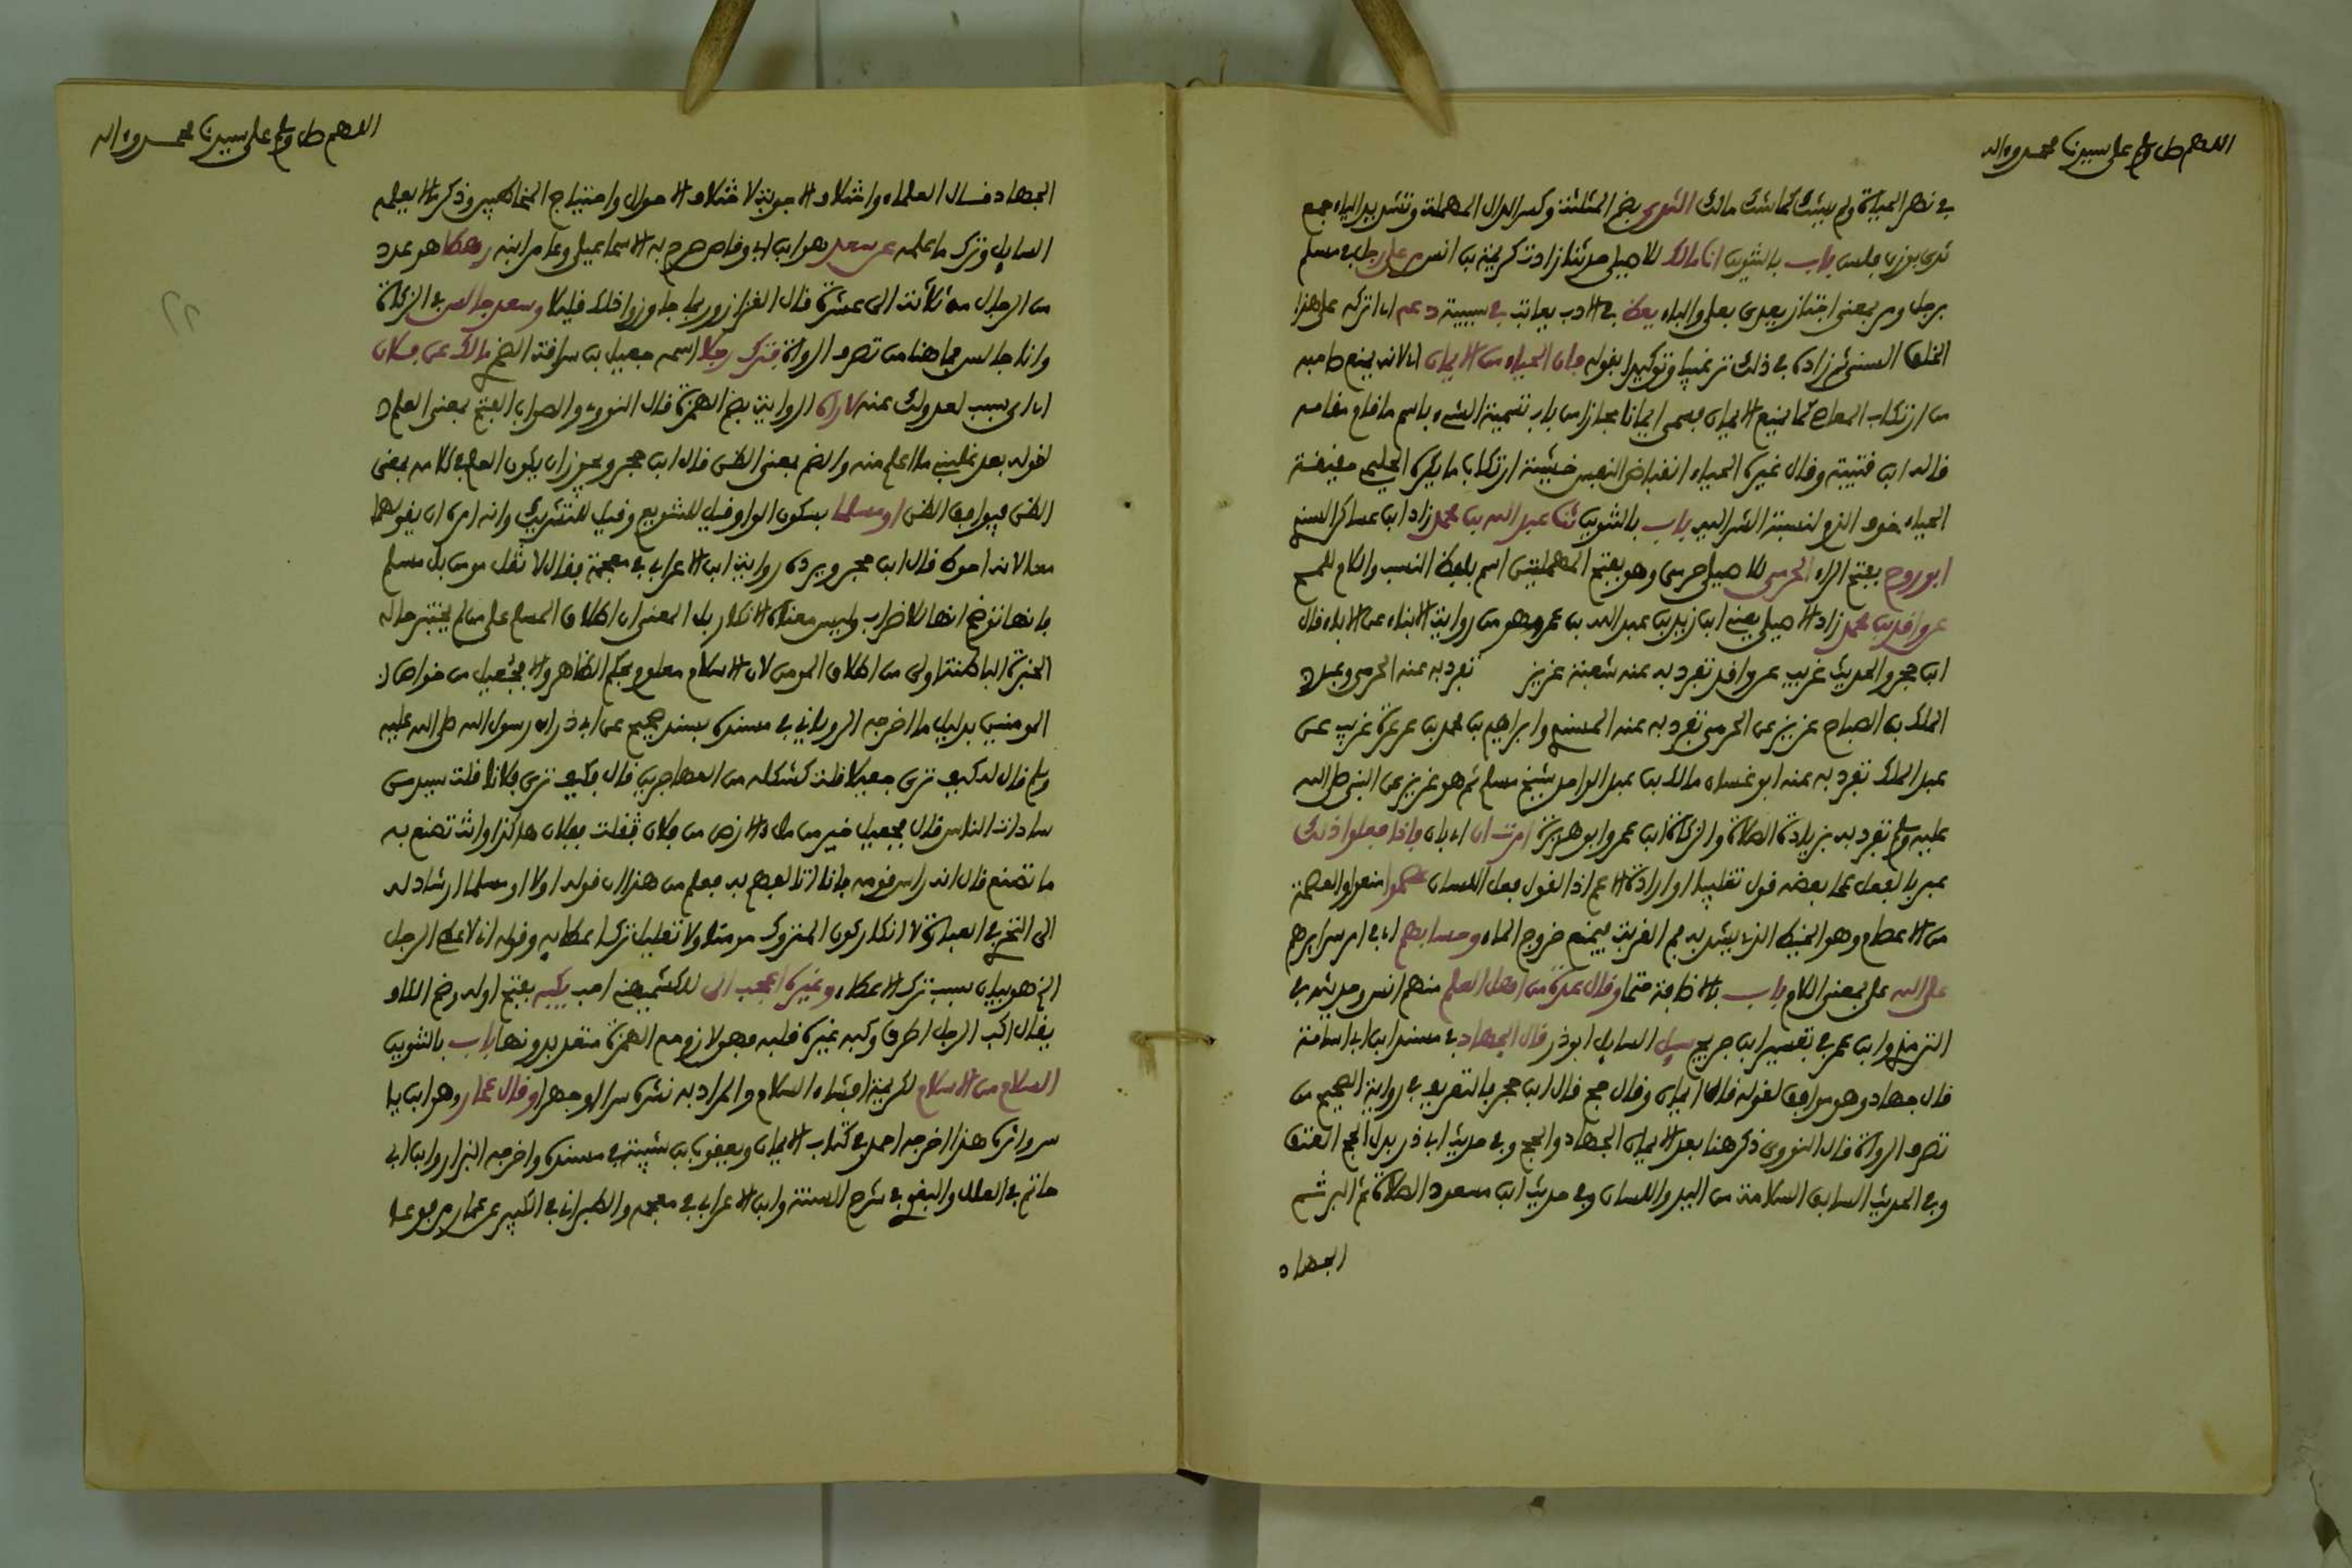 اللهم صل وسلم على سيدنا محمد وءاله
في نهر الحياة ولم يشك كما شك مالك الثدي بضم المثلثة وكسر الدال المهملة وتشديد الياء جمع
ثدي بوزن فلس باب بالتنوين انا مالك للاصيلي حدثنا زادت كريمة بن انس مر على رجل في مسلم
برجل ومر بمعنى اجتاز يعدى بعلى والباء يعظ في الادب يعاتب في سببية دعه اي اتركه على هذا
الخلق السني ثم زاده في ذلك ترغيبا وتوكيدا بقوله فان الحياء من الايمان اي لانه يمنع صاحبه
من ارتكاب المعاصي كما يمنع الايمان فسمى ايمانا مجازا من باب تسمية الشيء باسم ما قام مقامه
قاله ابن قتيبة وقال غيره الحياء انقباض النفس خشية ارتكاب ما يكره الحليمي حقيقة
الحياء خوف الذم لنسبة الشر اليه باب بالتنوين ثنا عبد الله بن محمد زاد ابن عساكر المسندي
ابو روح بفتح الراء الحرمي للاصيلي حرمي وهو بفتح المهملتين اسم بلفظ النسب واللام للمح
عن واقد بن محمد زاد الاصيلي يعني ابن زيد بن عبد الله بن عمر وهو من رواية الابناء عن الاباء قال
ابن حجر والحديث غريب عن واقد تفرد به عنه شعبة عزيز تفرد به عنه الحرمي وعبد
الملك بن الصباح عزيز عن الحرمي تفرد به عنه المسندي وابراهيم بن محمد بن عرعرة غريب عن
عبد الملك تفرد به عنه ابو غسان مالك بن عبد الواحد شيخ مسلم ثم هو عزيز عن النبي صلى الله
عليه وسلم تفرد به بزيادة الصلاة والزكاة ابن عمر وابو هريرة امرت ان اي بان فاذا فعلوا ذلك
عبر بالفعل عما بعضه قول تغليبا او ارادة الاعم اذ القول فعل اللسان عصموا منعوا والعصمة
من الاعصام وهو الخيط الذي يشد به فم القربة ليمنع خروج الماء وحسابهم اي في امر سرايرهم
على الله على بمعنى اللام باب بالاضافة حتما وقال عدة من اهل العلم منهم انس وحديثه في
الترمذي وابن عمر في تفسير ابن جرير سيل السايل ابو ذر قال الجهاد في مسند ابن ابي اسامة
قال جهاد وهو موافق لقوله قال ايمان وقال حج قال ابن حجر بالتعريف في رواية الصحيح من
تصرف الرواة قال النووي ذكر هنا بعد الايمان الجهاد والحج وفي حديث ابي ذر بدل الحج العتق
وفي الحديث السابق السلامة من اليد واللسان وفي حديث ابن مسعود الصلاة ثم البر ثم
الجهاد
اللهم صل وسلم على سيدنا محمد وءاله
الجهاد قال العلماء واختلاف الاجوبة لاختلاف الاحوال واحتياج المخاطبين وذكر ما لا يعلمه
السايل وترك ما علمه عن سعد هو ابن ابي وقاص صرح به الاسماعيلي وعامر ابنه رهطا هو عدد
من الرجال من ثلاثة الى عشرة قال القزاز وربما جاوزوا ذلك قليلا وسعد جالس في الزكاة
وانا جالس فما هنا من تصرف الرواة فترك رجلا اسمه جعيل بن سراقة الضمري مالك عن فلان
اي اي سبب لعدولك عنه لاراه الرواية بضم الهمزة قال النووي والصواب الفتح بمعنى العلم
لقوله بعد غلبني ما اعلم منه والضم بمعنى الظن قال ابن حجر ويجوز ان يكون العلم في كلامه بمعنى
الظن فيوافق الظن او مسلما بسكون الواو قيل للتنويع وقيل للتشريك وانه امره ان يقولهما
معا لانه احوط قال ابن حجر ويرده رواية ابن الاعرابي في معجمه فقال لا تقل مومن بل مسلم
فانها توضح انها للاضراب وليس معناه الانكار بل المعنى ان اطلاق المسلم على من لم يختبر حاله
الخبرة الباطنة اولى من اطلاق المومن لان الاسلام معلوم بحكم الظاهر والا فجعيل من خواص
المومنين بدليل ما اخرجه الروياني في مسنده بسند صحيح عن ابي ذر ان رسول الله صلى الله عليه
وسلم قال له كيف ترى جعيلا قلت كشكله من المهاجرين قال فكيف ترى فلانا قلت سيد من
سادات الناس قال فجعيل خير من ملء الارض من فلان فقلت ففلان هكذا وانت تصنع به
ما تصنع قال انه راس قومه فانا اتالفهم به فعلم من هذا ان قوله اولا او مسلما ارشاد له
الى التحري في العبارة لا انكار كون المتروك مومنا ولا تعليل ترك اعطايه وقوله اني لاعطي الرجل
الخ هو بيان سبب ترك الاعطاء وغيره اعجب الي للكشميهني احب يكبه بفتح اوله وضم الكاف
يقال اكب الرجل اطرق وكبه غيره قلبه فهو لازم مع الهمزة متعد بدونها باب بالتنوين
السلام من الاسلام لكريمة افشاء السلام والمراد به نشره سرا او جهرا وقال عمار وهو ابن يا
سر واثره هذا اخرجه احمد في كتاب الايمان ويعقوب بن شيبة في مسنده واخرجه البزار وابن ابي
حاتم في العلل والبغوي في شرح السنة وابن الاعرابي في معجمه والطبراني في الكبير عن عمار مرفوعا